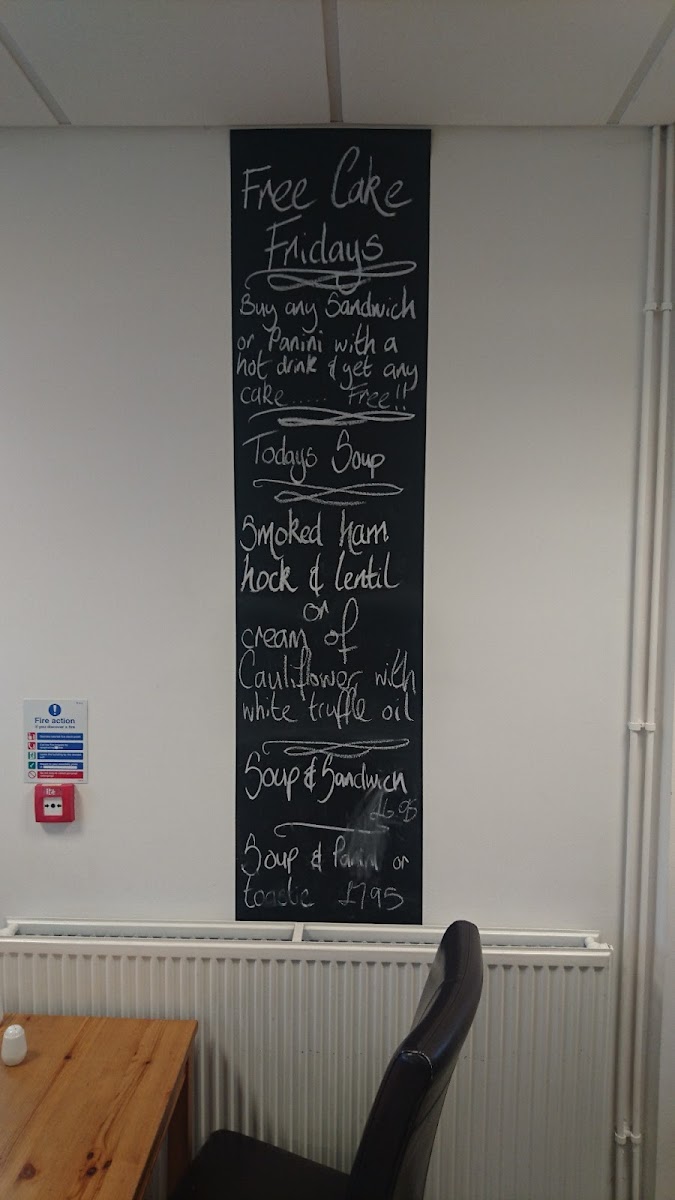 Free Cake
Fridays
Buy any Sandwich
or Panini with a
hot drink & get any
cake...... Free!!
Todays Soup
Smoked ham
hock & lentil
or
cream of
Cauliflower with
white truffle oil
Soup & Sandwich
£6.95
Soup & Panini or
toastie £7.95
Fire action